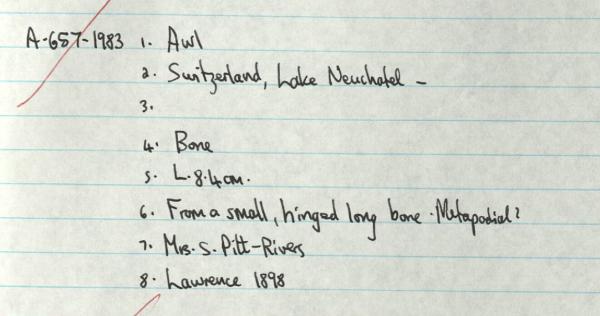 A-657-1983 1. Awl
2. Switzerland, Lake Neuchatel -
3.
4. Bone
5. L.8.4cm.
6. From a small, hinged long bone. Metapodial?
7. Mrs. S. Pitt-Rivers
8. Lawrence 1898